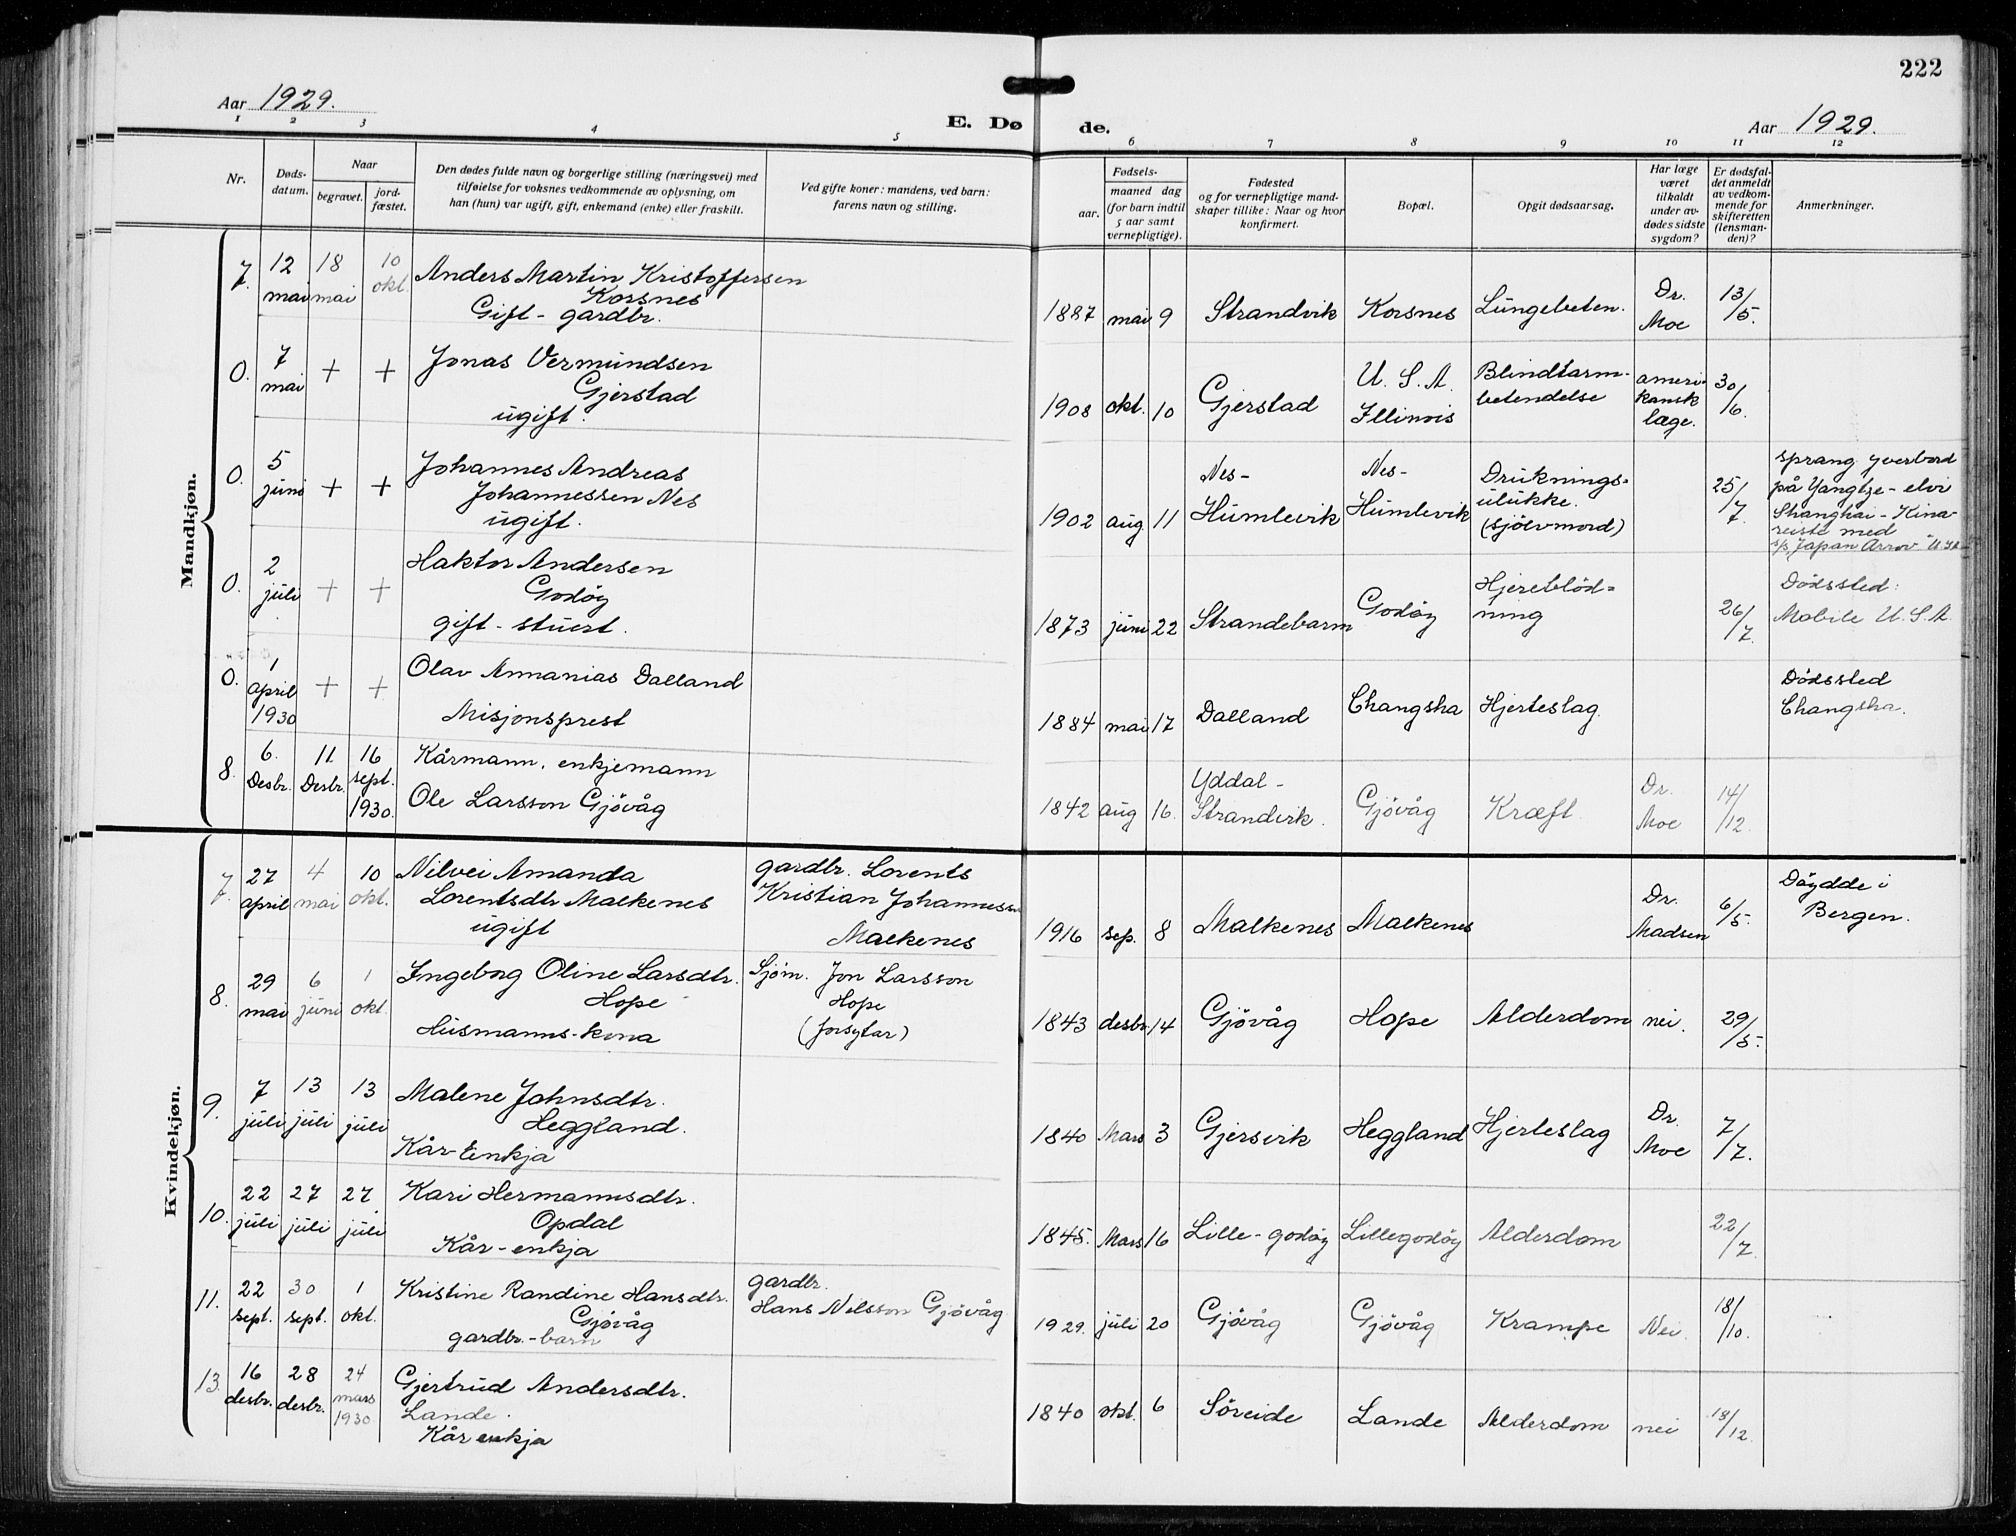 222
Aar 1929.
E. Dø de.
Aar 1929.
1 2 3 4 5 6 7 8 9 10 11 12
Nr.
Døds-
datum.
Naar
begravet.
jord-
fæstet.
Den dødes fulde navn og borgerlige stilling (næringsvei) med
tilføielse for voksnes vedkommende av oplysning, om
han (hun) var ugift, gift, enkemand (enke) eller fraskilt.
Ved gifte koner: mandens, ved barn:
farens navn og stilling.
Fødsels-
aar.
maaned dag
(for barn indtil
5 aar samt
vernepligtige).
Fødested
og for vernepligtige mand-
skaper tillike: Naar og hvor
konfirmert.
Bopæl.
Opgit dødsaarsag.
Har læge
været
tilkaldt
under av-
dødes sidste
sygdom?
Er dødsfal-
det anmeldt
av vedkom-
mende for
skifteretten
(lensman-
den)?
Anmerkninger.
Mandkjøn.
7. 12 mai 18 mai 10 okt.
Anders Martin Kristoffersen
Korsnes
Gift - gardbr.
1887 mai 9 Strandvik Korsnes Lungebeten. Dr. Moe 13/5.
0. 7 mai + +
Jonas Vermundsen
Gjerstad
ugift.
1908 okt. 10 Gjerstad
U. S. A.
Illinois
Blindtarm-
betendelse
ameri-
kansk
læge.
30/6.
0. 5 juni + +
Johannes Andreas
Johannessen Nes
ugift.
1902 aug 11
Nes-
Humlevik
Nes-
Humlevik
Druknings-
ulukke.
(sjölvmord)
25/7.
sprang yverbord
på Yangtze-elvi
Shanghai - Kina-
reiste med
s/s "Japan Arrow" U.S.A.
0. 2 juli + +
Haktor Andersen
Godöy
gift - stuert.
1873 juni 22 Strandebarm Godöy
Hjerneblöd-
ning
26/7.
Dödssted:
Mobile U. S. A.
0. 1 april 1930 + +
Olav Annanias Dalland
Misjonsprest
1884 mai 17 Dalland Changsha Hjerteslag.
Dödssted
Changsha.
8. 6. Desbr. 11 Desbr. 16 sept. 1930.
Kårmann, enkjemann
Ole Larsson Gjövåg
1842 aug 16.
Yddal -
Strandvik.
Gjövåg Kræft. Dr. Moe 14/12.
Kvindekjøn.
7. 27 april 4 mai 10 okt.
Nilvei Amanda
Lorentsdtr Malkenes
ugift
gardbr. Lorents
Kristian Johannessen
Malkenes
1916 sep. 8 Malkenes Malkenes Dr. Madsen 6/5.
Döydde i
Bergen.
8. 29 mai 6 juni 1 okt.
Ingeborg Oline Larsdtr.
Hope
Husmanns-kona
Sjöm. Jon Larsson
Hope
(forsytar)
1843 desbr. 14 Gjövåg Hope Alderdom nei. 29/5.
9. 7 juli 13 juli 13 juli
Malene Johnsdtr.
Heggland.
Kår-Enkja
1840 Mars 3 Gjersvik Heggland Hjerteslag Dr. Moe 7/7.
10. 22 juli 27 juli 27 juli
Kari Hermannsdtr.
Opdal
Kår-enkja
1845. Mars 16 Lille-godöy Lillegodöy Alderdom 22/7.
11. 22 sept. 30 sept. 1 okt.
Kristine Randine Hansdtr.
Gjövåg
gardbr.-barn
gardbr.
Hans Nilsson Gjövåg
1929. juli 20 Gjövåg Gjövåg Krampe Nei. 18/10.
13. 16 desbr. 28 desbr. 24 mars 1930
Gjertrud Andersdtr.
Lande.
Kår enkja
1840 okt. 6 Söreide Lande Alderdom nei 18/12.